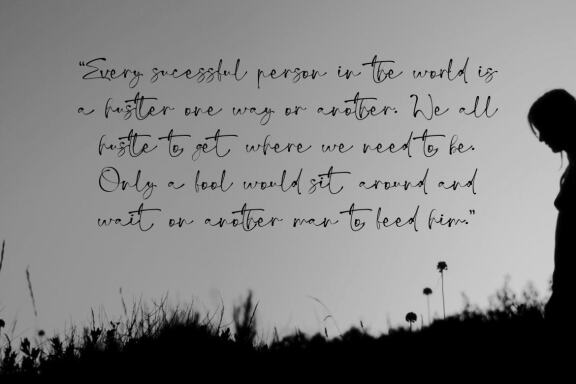 "Every sucessful person in the world is
a hustler one way or another. We all
hustle to get where we need to be.
Only a fool would sit around and
wait on another man to feed him."